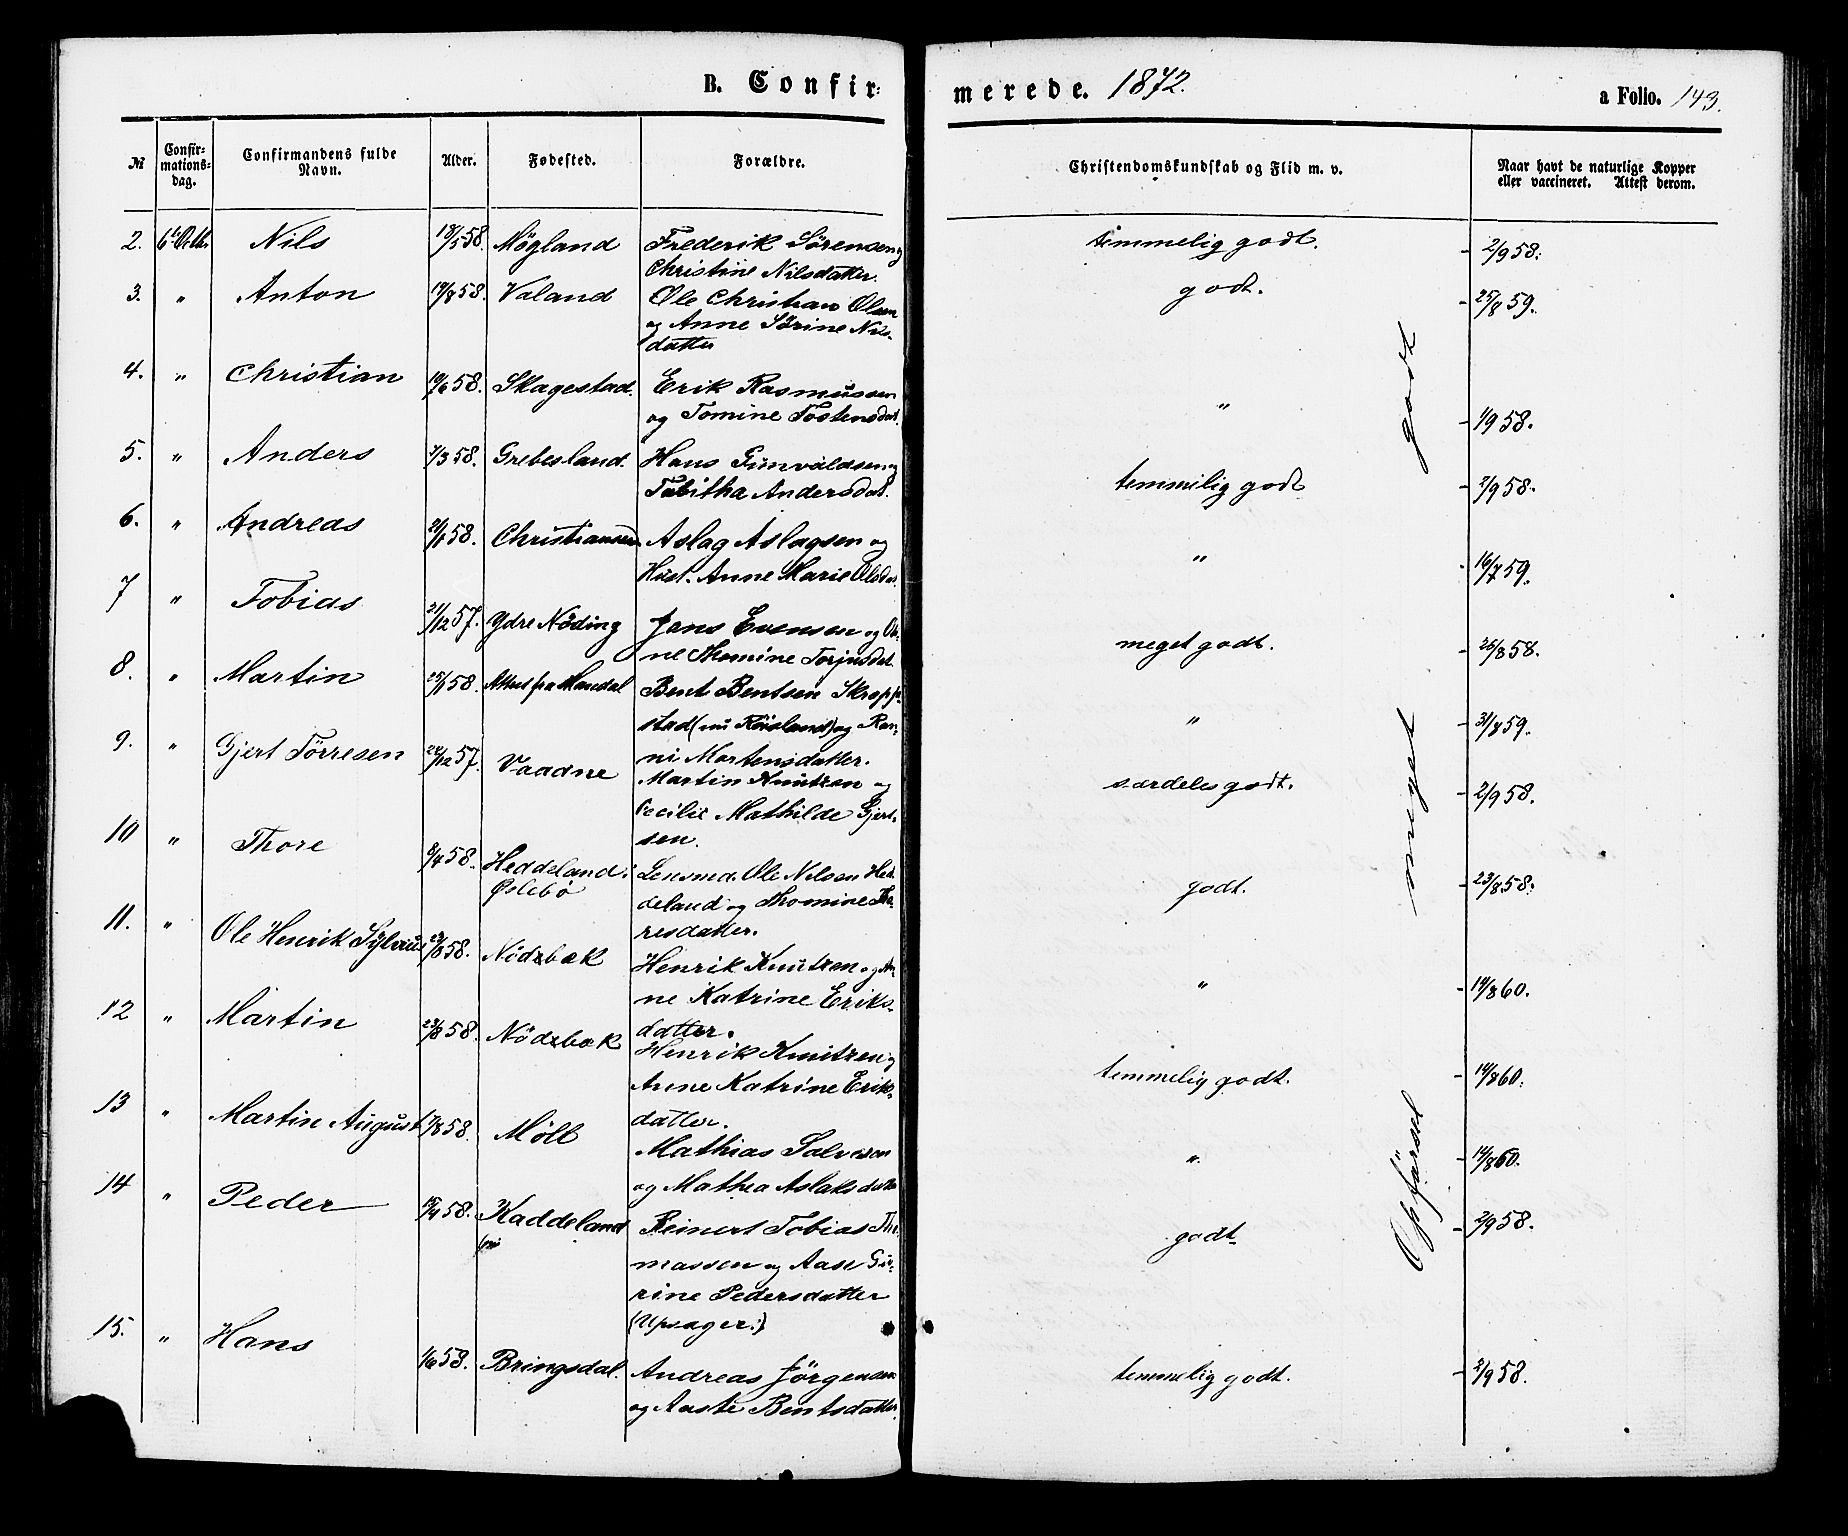 B. Confir-
merede. 1872.
a Folio. 143.
№ Confir-mations-dag. Confirmandens fulde Navn. Alder. Fødested. Forældre. Christendomskundskab og Flid m. v. Naar havt de naturlige Kopper eller vaccineret. Attest derom.
2. 6te Octbr. Nils 18/5 58. Møgland Frederik Sörensen og temmelig godt. 2/9 58.
Christine Nilsdatter.
3. " Anton 19/8 58. Valand Ole Christian Olsen godt. 25/8 59.
og Anne Sörine Nils-
datter
4. " Christian 19/6 58. Skagestad. Erik Rasmussen " 1/9 58.
og Tomine Tostensdat.
5. " Anders 7/3 58. Grebesland. Hans Gunvaldsen og temmelig godt 2/9 58.
Tabitha Andersdat.
6. " Andreas 58. Christianssand Aslag Aslagsen og " 16/7 59.
Hust. Anne Marie Olsdat.
7 " Tobias 21/12 57. Ydre Nöding Jans Evensen og Ol- meget godt. 25/8 58.
ne Thomine Torjusdat.
8. " Martin 58. Attest fra Mandal Bent Bentsen Skropp- " 31/8 59.
stad (nu Röisland) og Ran-
ni Martensdatter.
9. " Gjert Törresen 57. Vaadne Martin Knutzen og særdeles godt. 2/9 58.
Cecilie Mathilde Gjert-
sen.
10 " Thore 8/4 58. Heddeland i Lensmd. Ole Nilsen Hed- godt. 23/8 58.
Öslebö deland og Thomine Tho-
resdatter.
11. " Ole Henrik Sylvius 58. Nödzbæk Henrik Knutzen og An- " 14/8 60.
ne Katrine Eriks-
datter.
12 " Martin 23/8 58. Nödzbæk Henrik Knutzen og temmelig godt. 14/8 60.
Anne Katrine Erik-
datter.
13 " Martin August 17/8 58. Möll Mathias Salvesen " 14/8 60.
og Mathea Aslaksdatter
14 " Peder 58. Kaddeland Reinert Tobias Tho- godt. 2/9 58.
massen og Aase Gu-
rine Pedersdatter
(Upsager.)
15. " Hans 1/6 58. Bringsdal. Andreas Jörgensen temmelig godt. 2/9 58.
og Aaste Bentsdatter.
Opförsel meget godt